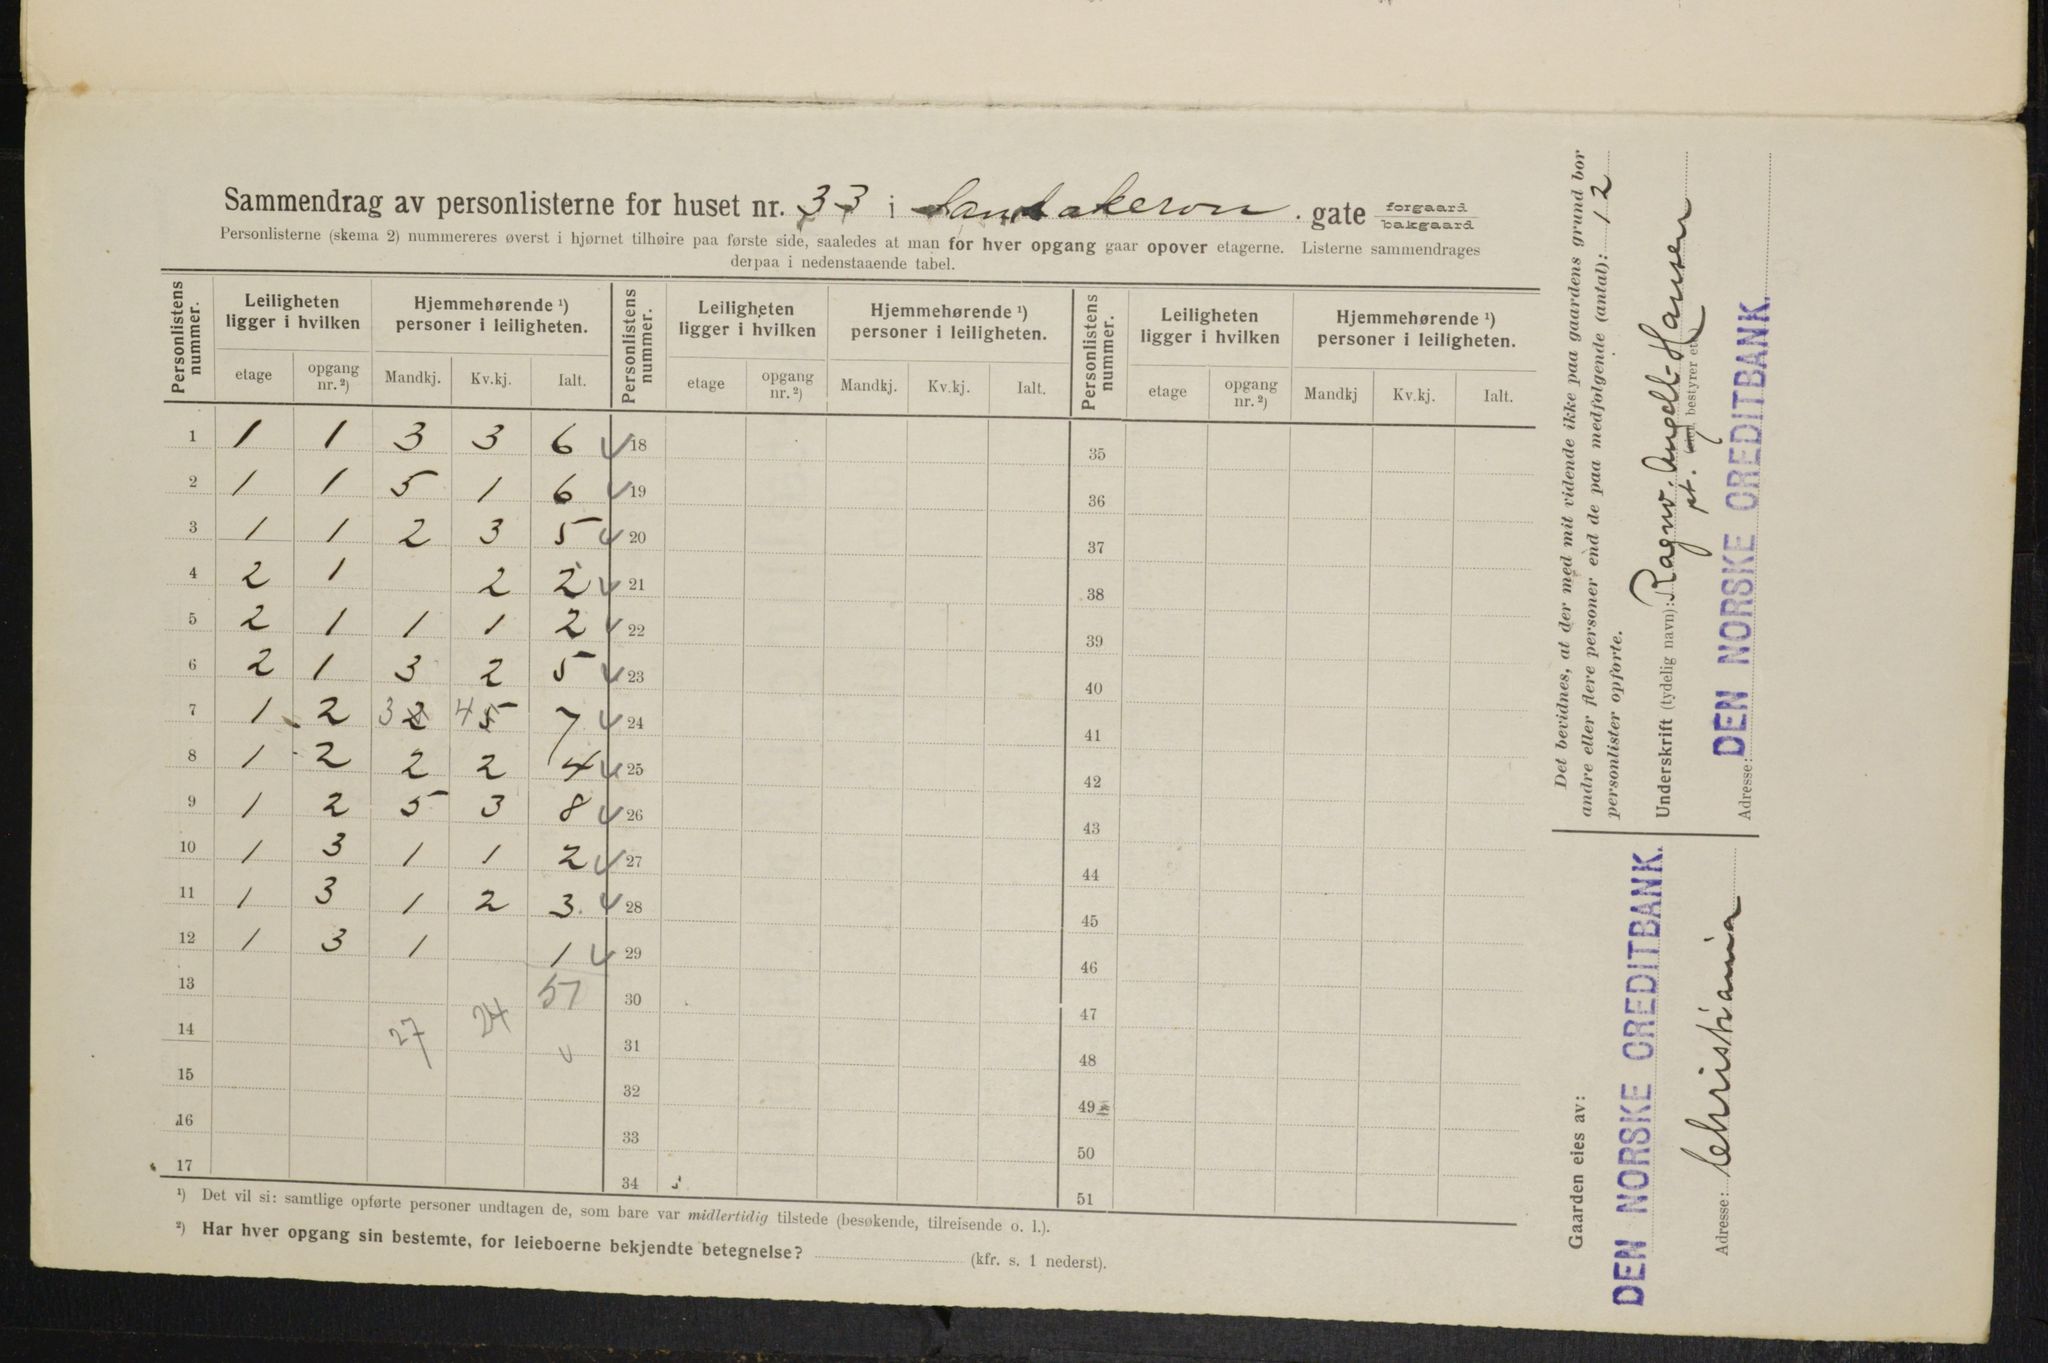 Sammendrag av personlisterne for huset nr. 33 i Sandakervn. gate forgaard bakgaard
Personlisterne (skema 2) nummereres øverst i hjørnet tilhøire paa første side, saaledes at man for hver opgang gaar opover etagerne. Listerne sammendrages
derpaa i nedenstaaende tabel.
Personlistens nummer. Leiligheten ligger i hvilken Hjemmehørende ¹) personer i leiligheten. Personlistens nummer. Leiligheten ligger i hvilken Hjemmehørende ¹) personer i leiligheten. Personlistens nummer. Leiligheten ligger i hvilken Hjemmehørende ¹) personer i leiligheten.
etage opgang nr. ²) Mandkj. Kv.kj. Ialt. etage opgang nr. ²) Mandkj. Kv.kj. Ialt. etage opgang nr. ²) Mandkj Kv.kj. Ialt.
1 1 1 3 3 6 18 35
2 1 1 5 1 6 19 36
3 1 1 2 3 5 20 37
4 2 1 2 2 21 38
5 2 1 1 1 2 22 39
6 2 1 3 2 5 23 40
7 1 2 3 2 4 5 7 24 41
8 1 2 2 2 4 25 42
9 1 2 5 3 8 26 43
10 1 3 1 1 2 27 44
11 1 3 1 2 3. 28 45
12 1 3 1 1 29 46
13 51 30 47
14 27 24 31 48
15 32 49
16 33 50
17 34 51
¹) Det vil si: samtlige opførte personer undtagen de, som bare var midlertidig tilstede (besøkende, tilreisende o. l.).
²) Har hver opgang sin bestemte, for leieboerne bekjendte betegnelse? (kfr. s. 1 nederst).
Det bevidnes, at der med mit vidende ikke paa gaardens grund bor
andre eller flere personer end de paa medfølgende (antal): 12
personlister opførte.
Underskrift (tydelig navn): Ragnv. Angell-Hansen
pt. bestyrer
Adresse: DEN NORSKE CREDITBANK.
Gaarden eies av:
DEN NORSKE CREDITBANK.
Adresse: Christiania